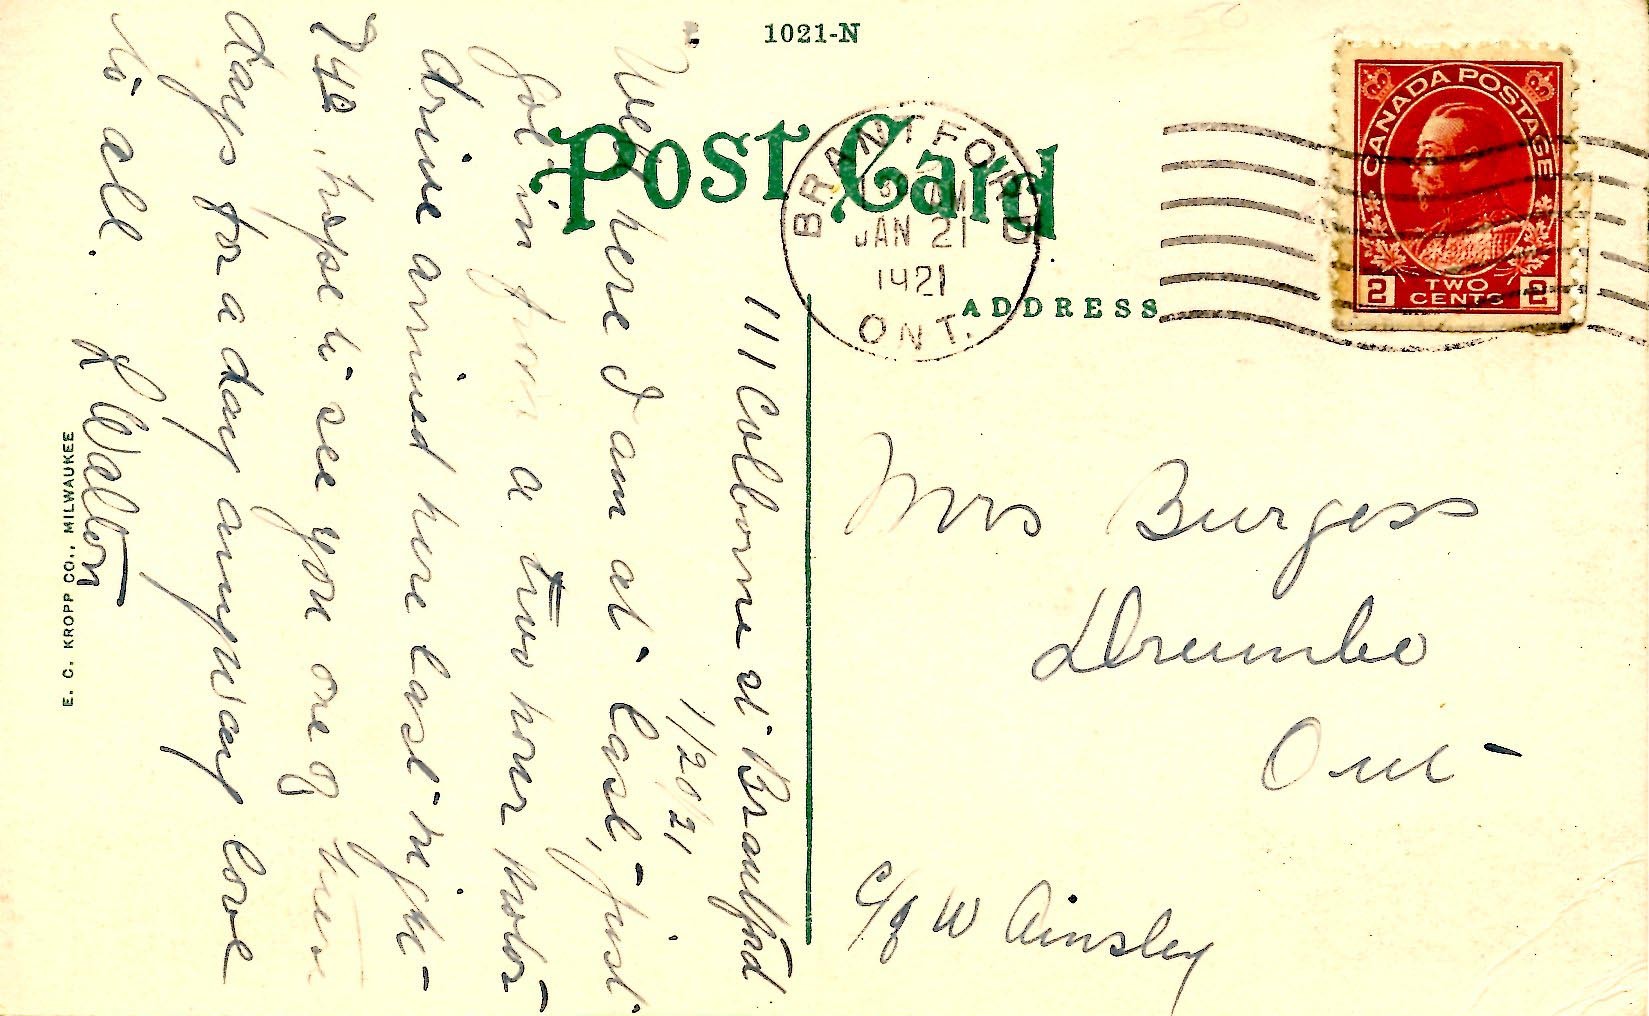 1021-N
Post Card
BRANTFORD
PM
JAN 21
1921
ONT.
CANADA POSTAGE
2 TWO CENTS 2
ADDRESS
111 Colborne st Brantford
1/20/21
Well here I am at last, just
got in from a two hour motor
drive arrived here last night
hope to see you one of these
days for a day anyway love
to all.
L Walton
Mrs Burgess
Drumbo
Ont
c/o W Ainsley
E. C. KROPP CO., MILWAUKEE